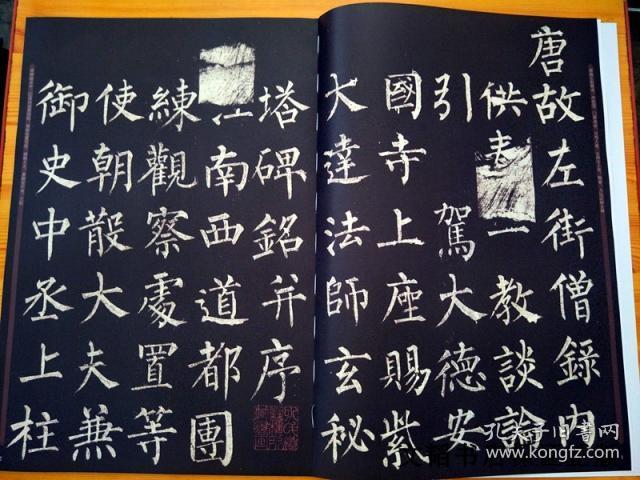 唐故左街僧錄內
供教談論
引駕大德安
國寺上座賜紫
大達法師玄秘
塔碑銘并序
江南西道都團
練觀察處置等
使朝散大夫兼
御史中丞上柱
孔夫子旧书网
www.kongfz.com